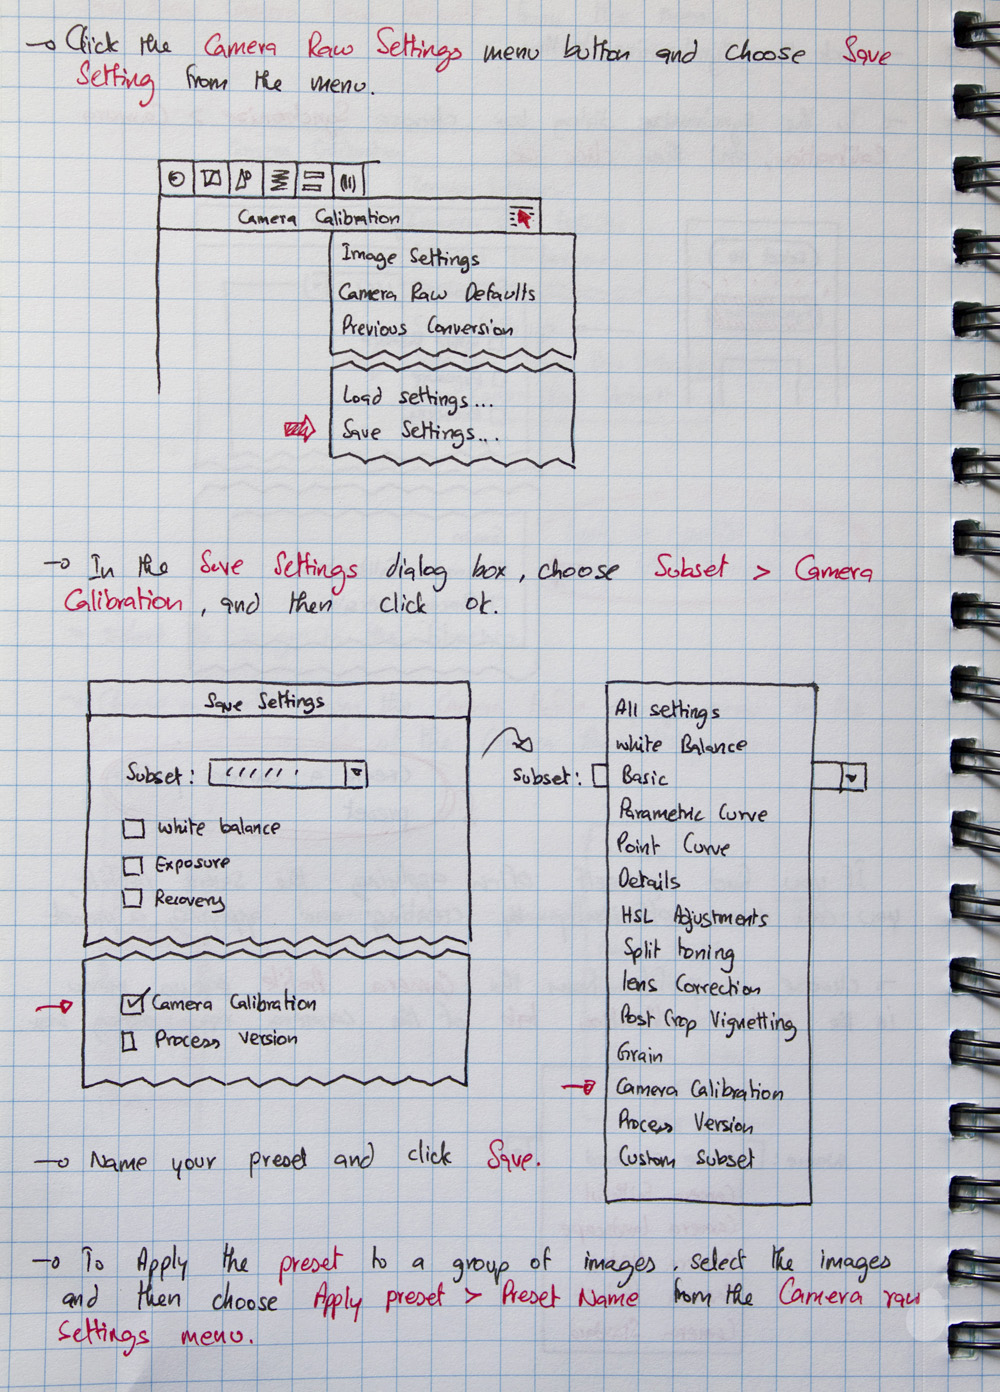 Click the Camera Raw Settings menu button and choose Save
Setting from the menu.
Camera Calibration
Image Settings
Camera Raw Defaults
Previous Conversion
Load settings...
Save Settings...
In the Save Settings dialog box, choose Subset > Camera
Calibration, and then click ok.
Save Settings
Subset:
White balance
Exposure
Recovery
Camera Calibration
Process version
All settings
White Balance
Subset: Basic
Parametric Curve
Point Curve
Details
HSL Adjustments
Split toning
lens Correction
Post Crop Vignetting
Grain
Camera Calibration
Process Version
Custom Subset
Name your preset and click Save.
To Apply the preset to a group of images, select the images
and then choose Apply preset > Preset Name from the Camera raw
settings menu.